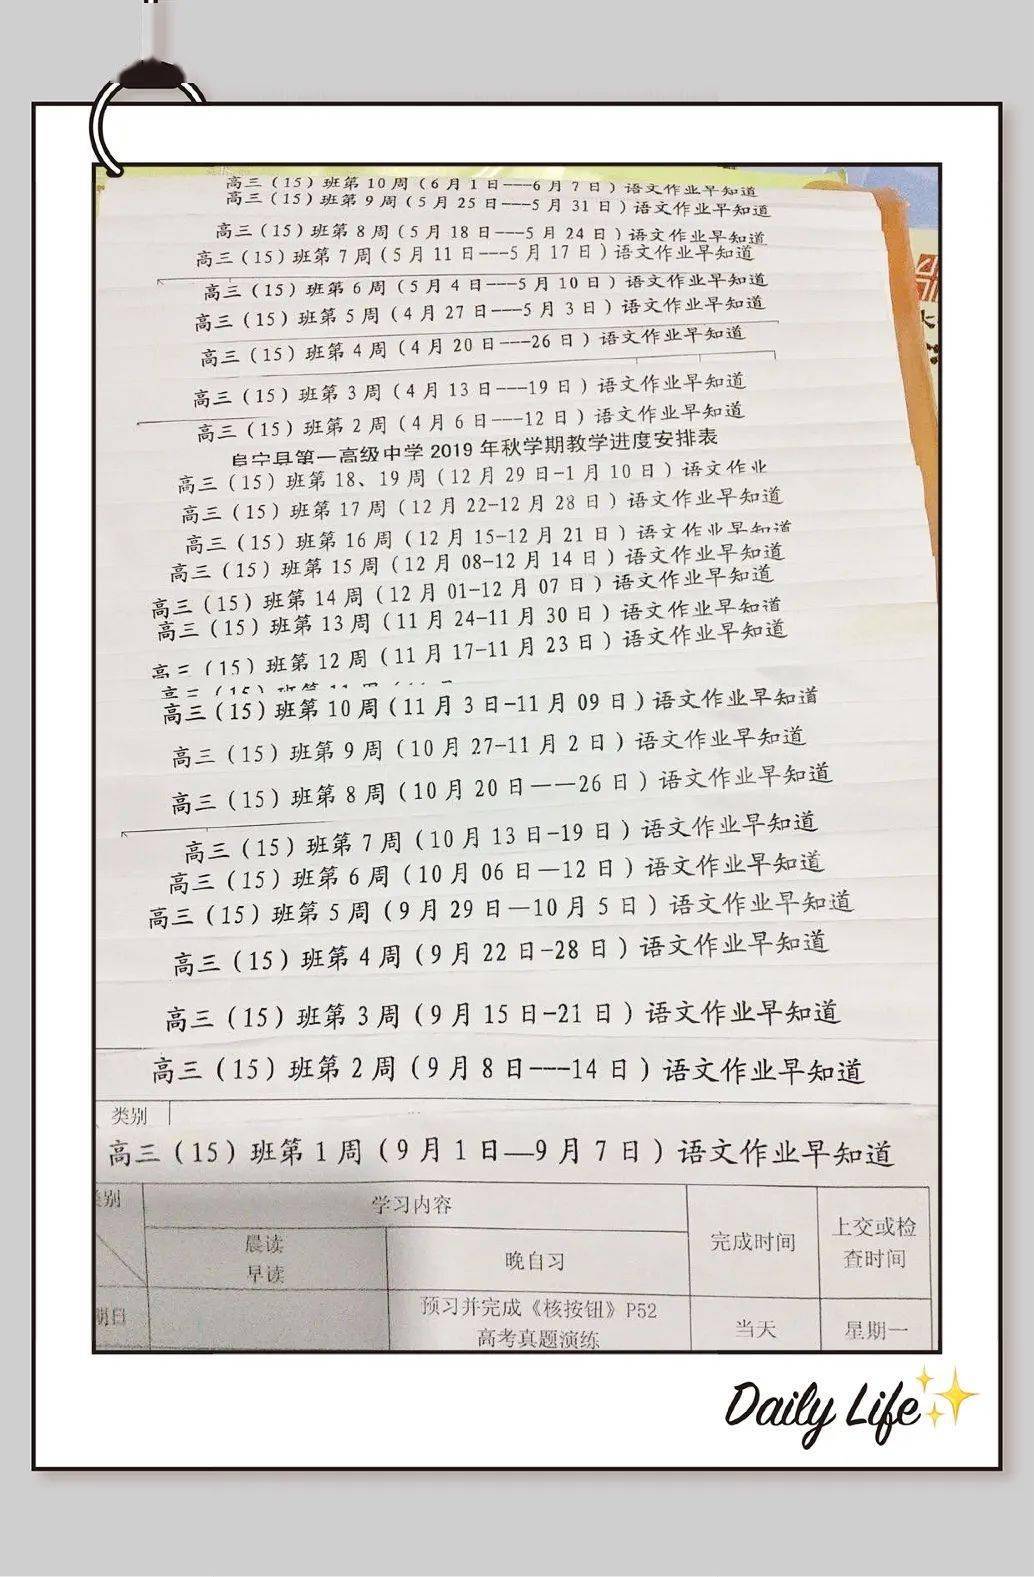 高三（15）班第 10 周（6 月 1 日---6 月 7 日）语文作业早知道
高三（15）班第 9 周（5 月 25 日---5 月 31 日）语文作业早知道
高三（15）班第 8 周（5 月 18 日---5 月 24 日）语文作业早知道
高三（15）班第 7 周（5 月 11 日---5 月 17 日）语文作业早知道
高三（15）班第 6 周（5 月 4 日---5 月 10 日）语文作业早知道
高三（15）班第 5 周（4 月 27 日---5 月 3 日）语文作业早知道
高三（15）班第 4 周（4 月 20 日---26 日）语文作业早知道
高三（15）班第 3 周（4 月 13 日---19 日）语文作业早知道
高三（15）班第 2 周（4 月 6 日---12 日）语文作业早知道
阜宁县第一高级中学 2019 年秋学期教学进度安排表
高三（15）班第 18、19 周（12 月 29 日-1 月 10 日）语文作业
高三（15）班第 17 周（12 月 22-12 月 28 日）语文作业早知道
高三（15）班第 16 周（12 月 15-12 月 21 日）语文作业早知道
高三（15）班第 15 周（12 月 08-12 月 14 日）语文作业早知道
高三（15）班第 14 周（12 月 01-12 月 07 日）语文作业早知道
高三（15）班第 13 周（11 月 24-11 月 30 日）语文作业早知道
高三（15）班第 12 周（11 月 17-11 月 23 日）语文作业早知道
高三（15）班第 11 周（11 月
高三（15）班第 10 周（11 月 3 日-11 月 09 日）语文作业早知道
高三（15）班第 9 周（10 月 27-11 月 2 日）语文作业早知道
高三（15）班第 8 周（10 月 20 日——26 日）语文作业早知道
高三（15）班第 7 周（10 月 13 日-19 日）语文作业早知道
高三（15）班第 6 周（10 月 06 日—12 日）语文作业早知道
高三（15）班第 5 周（9 月 29 日—10 月 5 日）语文作业早知道
高三（15）班第 4 周（9 月 22 日-28 日）语文作业早知道
高三（15）班第 3 周（9 月 15 日-21 日）语文作业早知道
高三（15）班第 2 周（9 月 8 日---14 日）语文作业早知道
类别
高三（15）班第 1 周（9 月 1 日—9 月 7 日）语文作业早知道
类别
学习内容
晨读
早读
晚自习
完成时间
上交或检
查时间
期日
预习并完成《核按钮》P52
高考真题演练
当天
星期一
Daily Life